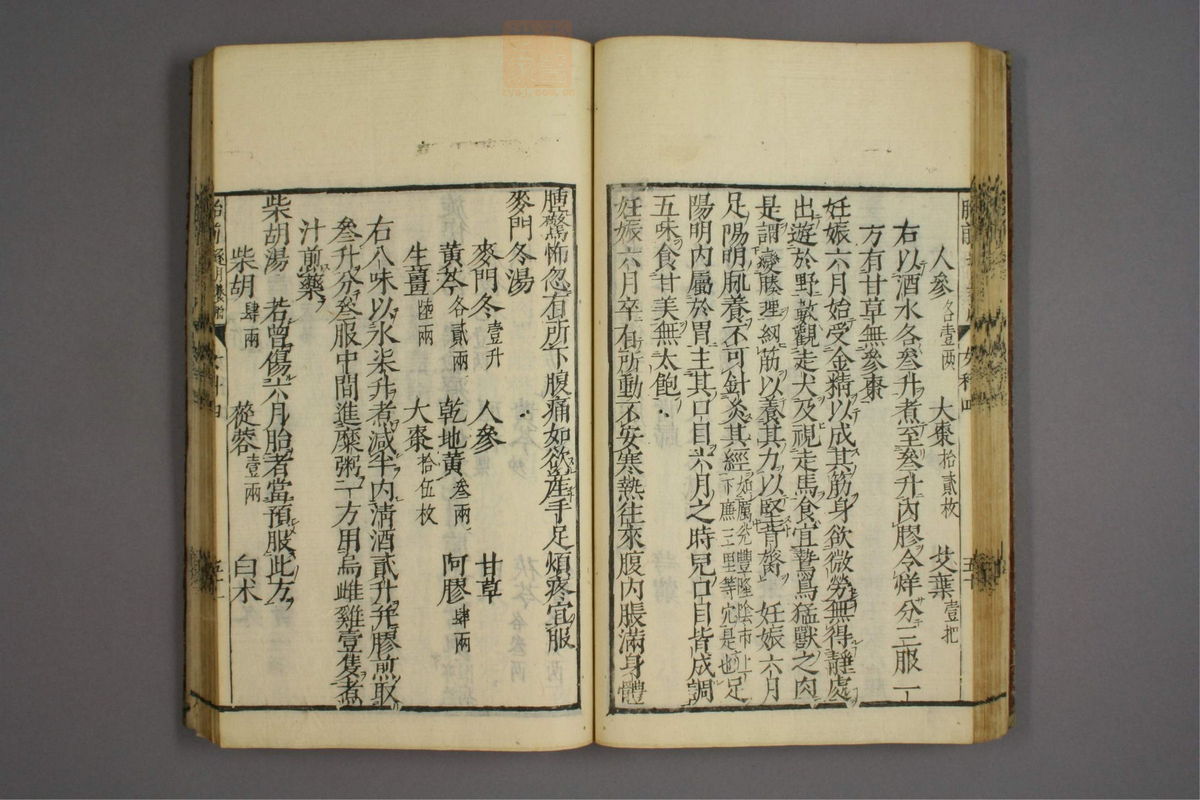 人參各壹兩　大棗拾貳枚　艾葉壹把
右以酒水各叄升煮至叄升內膠令烊分三服一
方有甘草無參棗
妊娠六月始受金精以成其筋身欲微勞無得靜處
出遊於野數觀走犬及視走馬食宜鷙鳥猛獸之肉
是謂變腠理紉筋以養其力以堅背膂　妊娠六月
足陽明脈養不可針灸其經如屬兌豐隆陰市上下廉三里等穴是也足
陽明內屬於胃主其口目六月之時兒口目皆成調
五味食甘美無太飽
妊娠六月卒有所動不安寒熱往來腹內脹滿身體
腫驚怖忽有所下腹痛如欲產手足煩疼宜服
麥門冬湯
麥門冬壹升　人參　甘草
黃芩各貳兩　乾地黃叄兩　阿膠肆兩
生薑陸兩　大棗拾伍枚
右八味以水柒升煮減半內清酒貳升并膠煎取
叄升分叄服中間進糜粥一方用烏雌雞壹隻煮
汁煎藥
柴胡湯　若曾傷六月胎者當預服此方
柴胡肆兩　蓯蓉壹兩　白朮